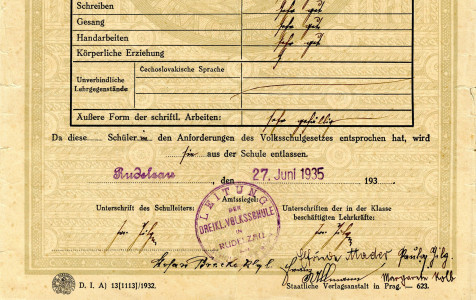 Schreiben sehr gut
Gesang sehr gut
Handarbeiten sehr gut
Körperliche Erziehung
Unverbindliche Lehrgegenstände
Čechoslovakische Sprache
Äußere Form der schriftl. Arbeiten: sehr gefällig
Da diese Schülerin den Anforderungen des Volksschulgesetzes entsprochen hat, wird
sie aus der Schule entlassen.
Rudelzau, den 27. Juni 1935 193
Amtssiegel:
Unterschrift des Schulleiters:
Unterschriften der in der Klasse
beschäftigten Lehrkräfte:
LEITUNG
DER
DREIKL. VOLKSSCHULE
IN
RUDELZAU
Mader
Margarete Kolb
D. I. A) 13[1113]/1932.
Staatliche Verlagsanstalt in Prag 623.